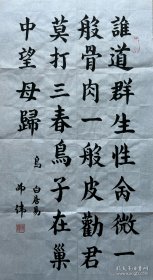 誰道群生性命微
般骨肉一般皮勸君
莫打三春鳥子在巢
中望母歸
鳥 白居易